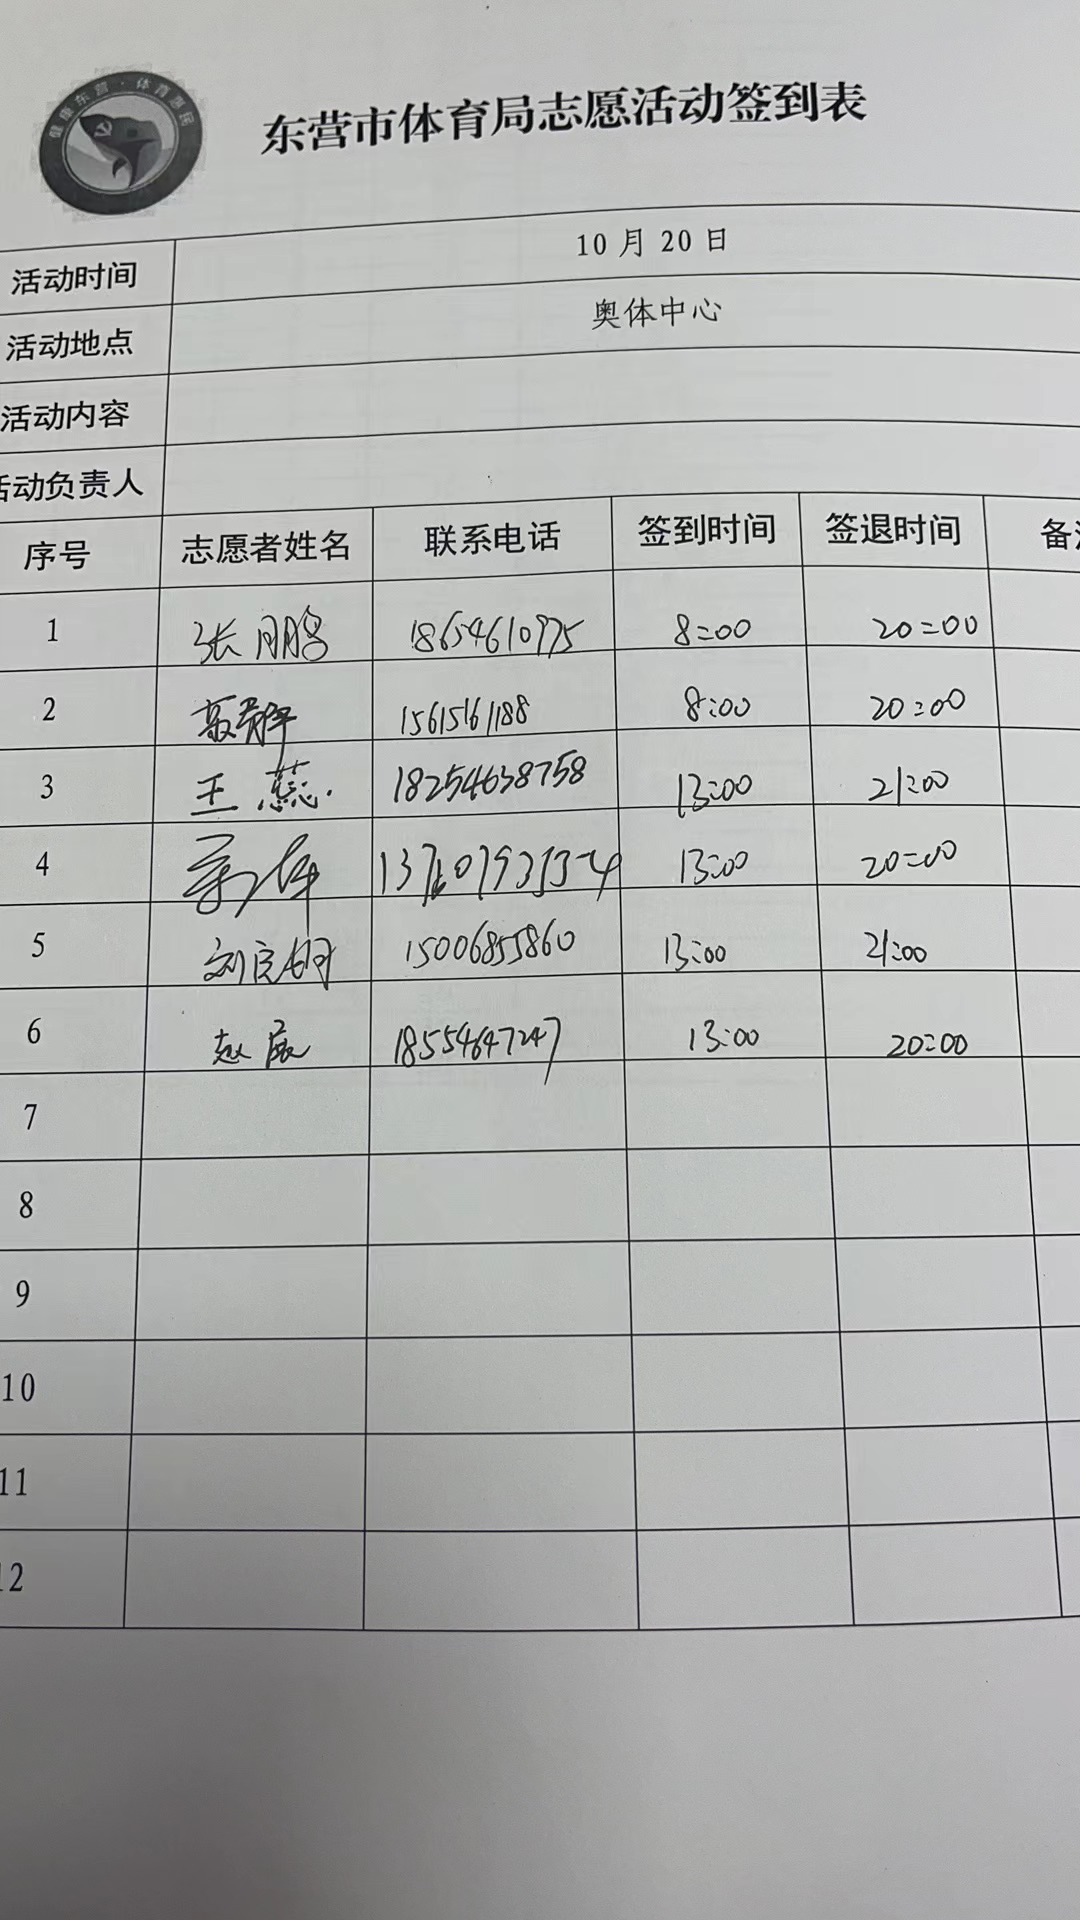 健康东营·体育惠民
东营市体育局志愿活动签到表
活动时间 10月20日
活动地点 奥体中心
活动内容
活动负责人
序号 志愿者姓名 联系电话 签到时间 签退时间 备
1 张鹏 18654610975 8:00 20:00
2 15615161188 8:00 20:00
3 王蕊 18254638758 13:00 21:00
4 13:00 20:00
5 15006855860 13:00 21:00
6 18554647247 13:00 20:00
7
8
9
10
11
12